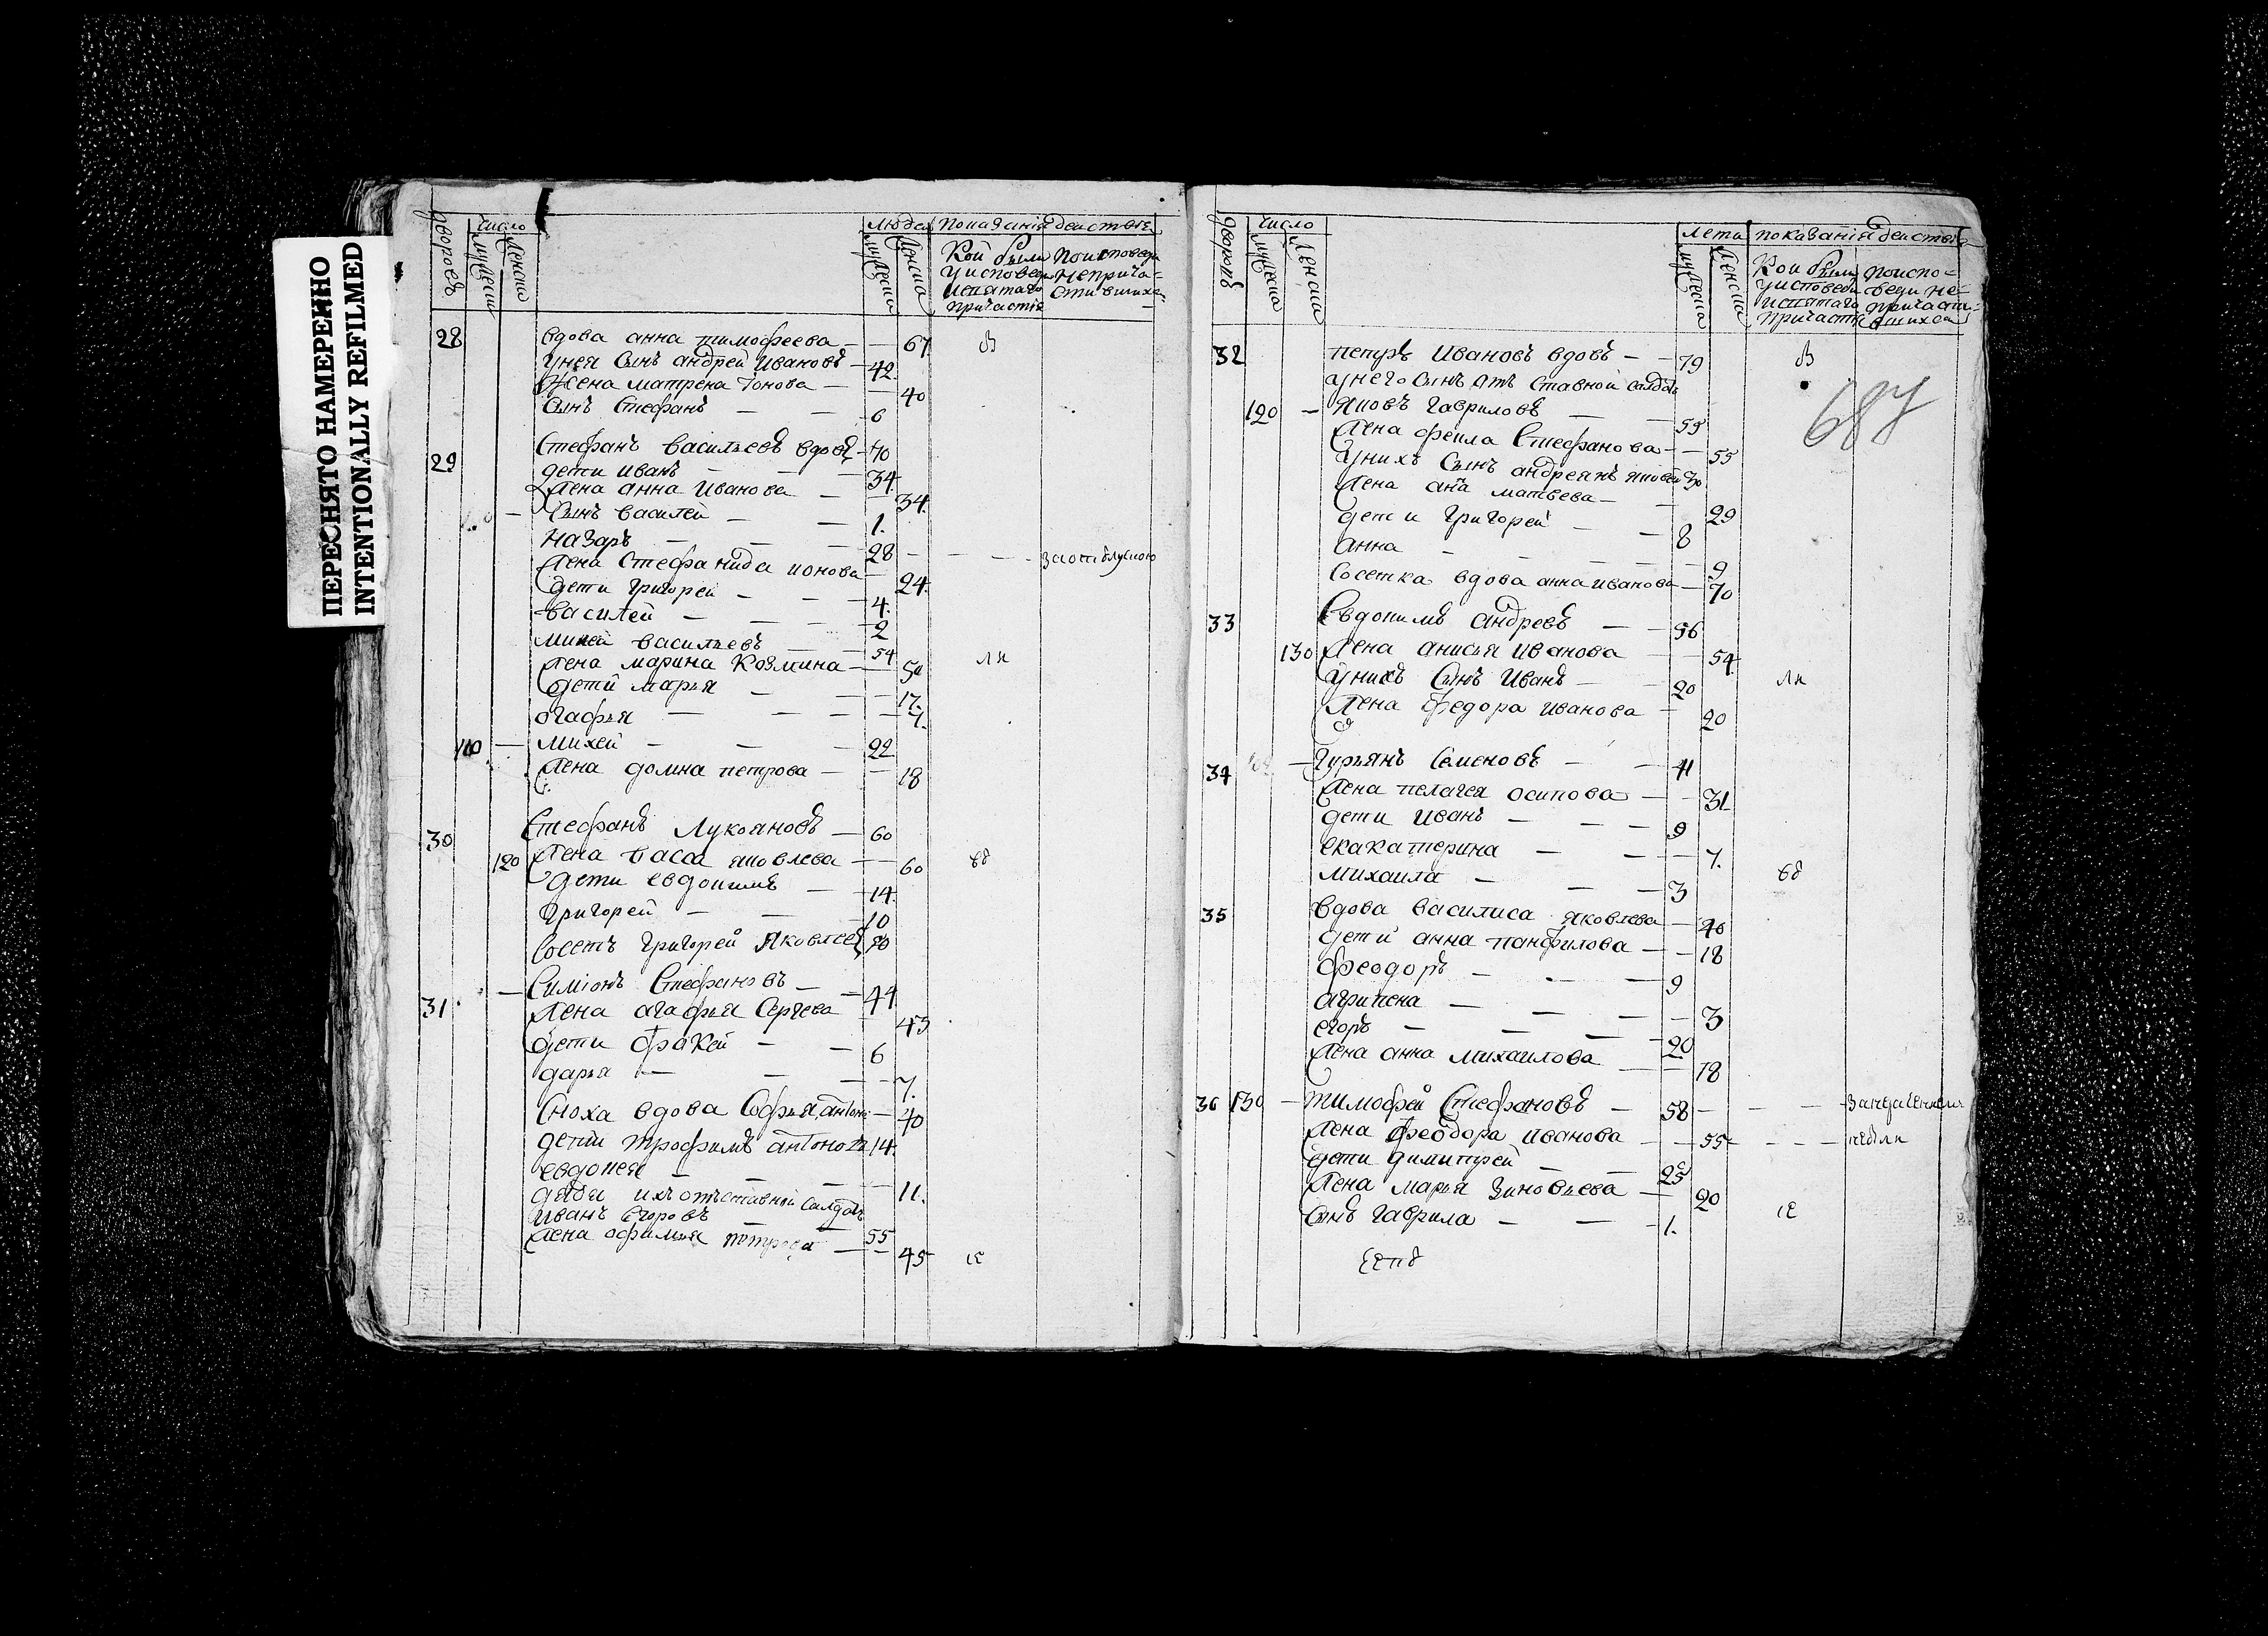 ПЕРЕСНЯТО НАМЕРЕННО
INTENTIONALLY REFILMED
дворовъ
число
мужеска
женска
Люде
показания действія
мужеска
женска
Кой были
у исповеди
и святаго
причастія
по исповеди
не прича-
стившихс
28 вдова анна тимофеева — — 67 В
у нея Сынъ андрей ивановъ — 42
Жена матрена Іонова — — 40
Сынъ Стефанъ — — 6
29 Стефанъ васильевъ вдовъ — 70
дети иванъ — — 34
Жена анна Иванова — — 34
Сынъ василей — — 1.
Назаръ — — — 28 — — — за отлучкою
Жена Стефанида ионова — 24.
дети григорей — — 4.
василей — — — 2
михей васильевъ — — 54
Жена марина Козмина — — 50 ли
дети марья — — — 17.
огафья — — — 7.
110 — михей — — — 22
Жена домна петрова — — 18
30 Стефанъ Лукояновъ — 60
120 Жена васса яковлева — — 60 бб
дети евдокимъ — — 14.
григорей — — — 10
Сосетъ григорей Яковлевъ 80
31 — Симіонъ Стефановъ — — 44
Жена агафья Сергева 45
дети фокей — — 6
дарья — — — 7.
Сноха вдова Софья антоно — 40
дети трофимъ антоновъ 14.
евдокея — — — 11.
дядя ихъ отъставной салдатъ
иванъ Егоровъ — — 55
Жена офимья петрова — — 45 іе
дворовъ
число
мужеска
женска
лета
показания действія
мужеска
женска
Кои были
у исповеди
и святаго
причастія
по испо-
веди не-
причасти-
вшихся
687
32 петръ Ивановъ вдовъ — — 79 В
у него Сынъ отъ ставной салдатъ
120 — яковъ гавриловъ — — 55
Жена фекла Стефанова — — 55
у нихъ Сынъ андреянъ яковлевъ 30
Жена анна матвеева — 29
дети григорей — — 8
анна — — — 9
Сосетка вдова анна иванова — 70
33 Евдокимъ андреевъ — — 56
130 Жена анисья иванова — 54
у нихъ Сынъ Иванъ — — 20 ли
Жена федора иванова — 20
34 — гурьянъ Семеновъ — — 41
Жена пелагея осипова — — 31
дети иванъ — — — 9
екакатерина — — — 7.
михаила — — — 3 бб
35 вдова василиса яковлева — 46
дети анна панфилова — — 18
феодоръ — — — 9
агрипена — — — — 3
егоръ — — — 20
Жена анна михаилова — — 18
36 130 — тимофей Стефановъ — 58 — — —
Жена феодора иванова — — 55 — — —
дети димитрей — — 25
Жена марья зиновьева — 20
Сынъ гаврила — — — 1. іе